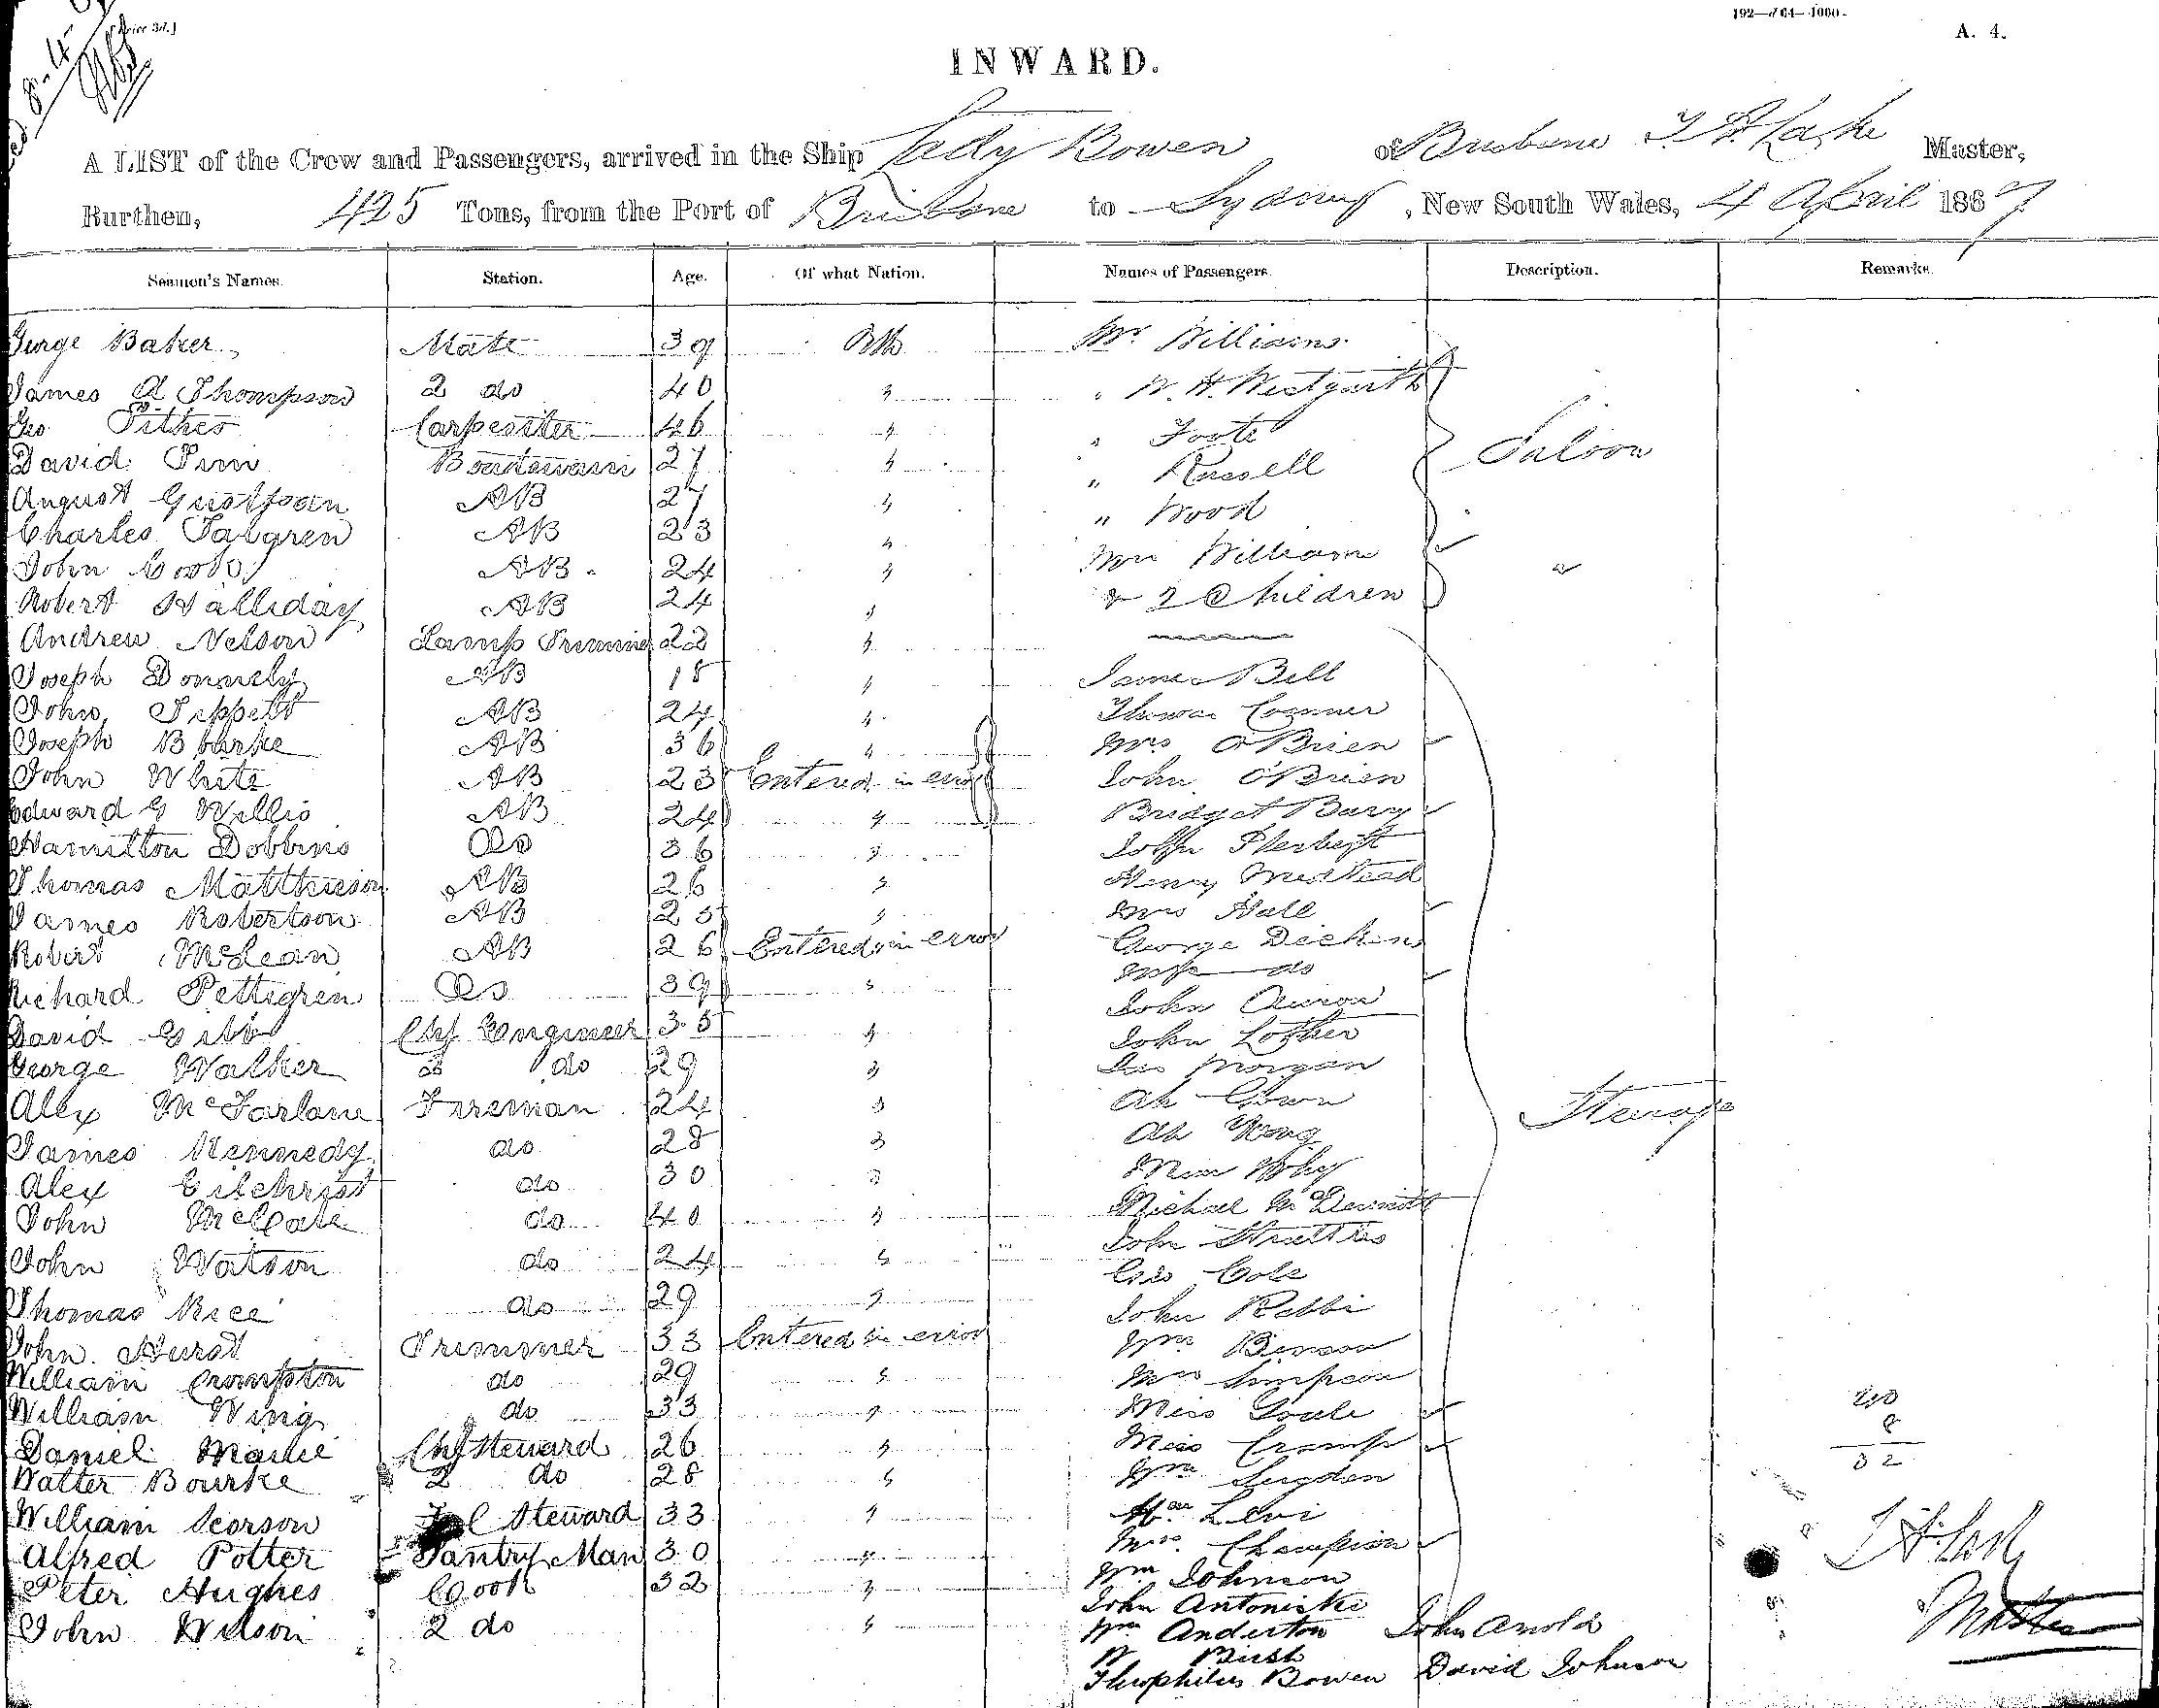 192—764—1000.
A. 4.
INWARD.
A LIST of the Crew and Passengers, arrived in the Ship Lady Bowen of Brisbane Master,
Burthen, 425 Tons, from the Port of Brisbane to Sydney, New South Wales, 4 April 1867
Seamen's Names. Station. Age. Of what Nation. Names of Passengers. Description. Remarks.
George Baker Mate 39 Mr. Williams
James A Thompson 2 do 40 " " W. H. Westgarth
Geo Pithes Carpenter 46 " " Foote
David Pim Boatswain 27 " " Russell Saloon
August Gustfson AB 27 " " Wood
Charles Talgren AB 23 " Mrs William
John AB 24 " & 2 Children
Robert Halliday AB 24 "
Andrew Nelson Lamp Trimmer 22 "
Joseph Donnely AB 18 " James Bell
John Tippett AB 24 " Thomas Connor
Joseph Burke AB 36 " Mrs O'Brien
John White AB 23 Entered in error John O'Brien
Edward G Willis AB 24 " Bridget Bary
Hamilton Dobbins do 36 " John
Thomas Matthieson AB 26 " Henry
James Robertson AB 25 " Mrs Hall
Robert McLean AB 26 Entered in error George Dickins
Richard Pettigren do 39 " Wife do
David Chf Engineer 35 " John
George Walker 2 do 29 " John Lother
Alex McFarlane Fireman 24 " Morgan
James Kennedy do 28 " Ah Steerage
Alex Gilchrist do 30 " Ah
John McCale do 40 " Michael McDermott
John Watson do 24 " John
Thomas Rice do 29 " Cole
John Hurst Trimmer 33 Entered in error John
William Crompton do 29 " Mrs Simpson
William Wing do 33 " Miss
Daniel Chf Steward 26 " Miss Cramp
Walter Bourke 2 do 28 " Wm Sugden
William Scorson Steward 33 " Levi
Alfred Potter Pantry Man 30 " Mrs Champion
Peter Hughes Cook 32 " Wm Johnson
John Wilson 2 do " John Antoniski
Wm Anderton John Arnold
Bush
Theophilus Bowen David Johnson
Master